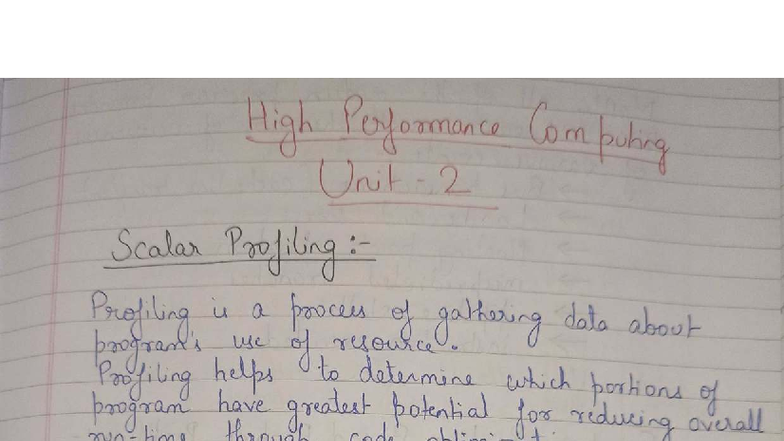 High Performance Computing
Unit - 2
Scalar Profiling :-
Profiling is a process of gathering data about
program's use of resource.
Profiling helps to determine which portions of
program have greatest potential for reducing overall
run-time through code